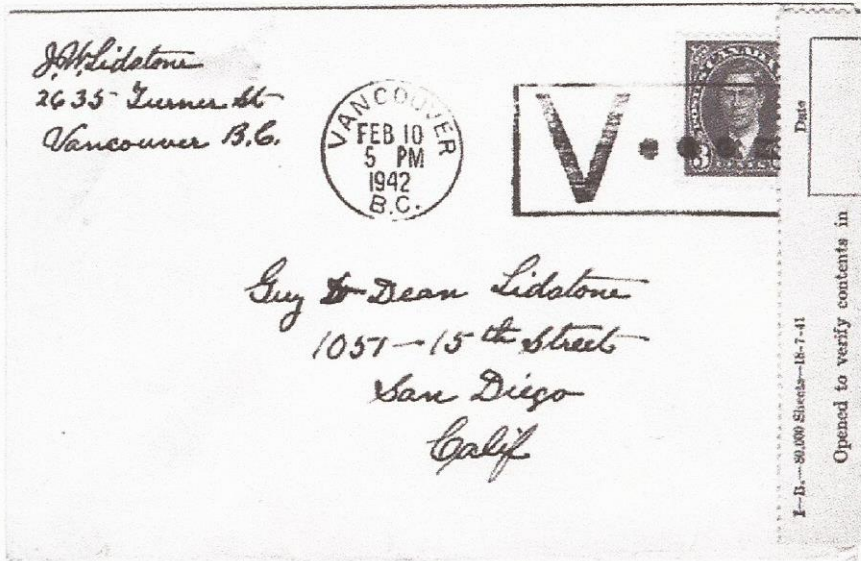 J.W. Lidstone
2635 Turner St
Vancouver B.C.
VANCOUVER
FEB 10
5 PM
1942
B.C.
V
3
Guy & Dean Lidstone
1057-15th Street
San Diego
Calif
Date
Opened to verify contents in
I-B.-80,000 Sheets-18-7-41